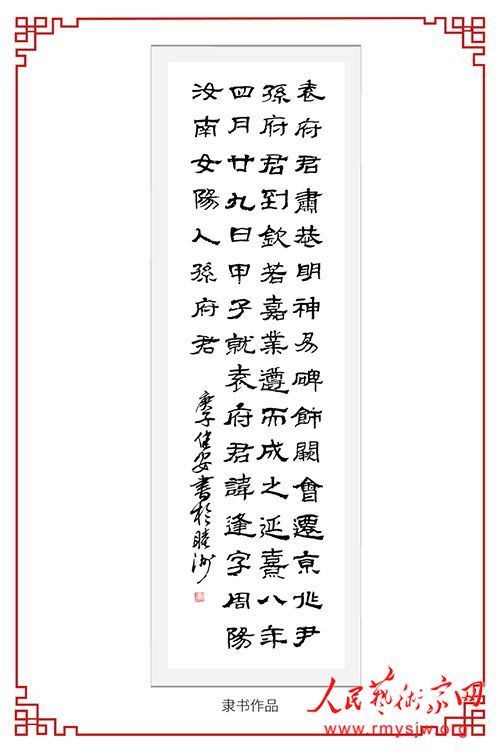 袁府君肅恭明神易碑飾闕會遷京兆尹
孫府君到欽若嘉業遵而成之延熹八年
四月廿九日甲子就袁府君諱逢字周陽
汝南女陽人孫府君
庚子安書於睦洲
隶书作品
人民藝術家网
www.rmysjw.org